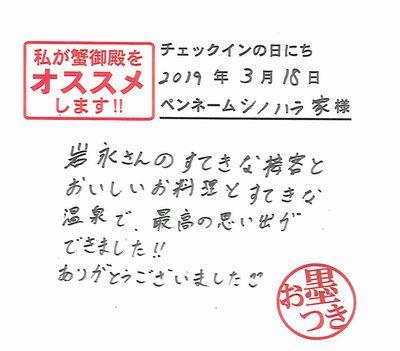 私が蟹御殿を
オススメ
します!!
チェックインの日にち
2019年3月18日
ペンネームシノハラ家様
岩永さんのすてきな接客と
おいしいお料理とすてきな
温泉で、最高の思い出が
できました!!
ありがとうございました
お墨つき